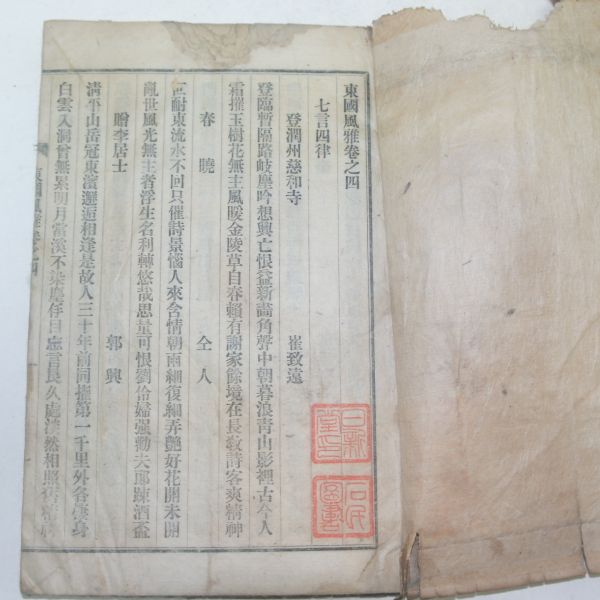 東國風雅卷之四
七言四律
登潤州慈和寺 崔致遠
登臨暫隔路岐塵吟想興亡恨益新畵角聲中朝暮浪靑山影裡古今人
霜摧玉樹花無主風暖金陵草自春賴有謝家餘境在長敎詩客爽精神
春曉 仝人
叵耐東流水不回只催詩景惱人來含情朝雨細復細弄艶好花開未開
亂世風光無主者浮生名利轉悠哉思量可恨劉伶婦强勸夫郞踈酒盃
贈李居士 郭輿
淸平山岳冠東濱邂逅相逢是故人三十年前同擢第一千里外各棲身
白雲入洞曾無累明月當溪不染塵 日忘言良久處淡然相照舊精神
東國風雅卷之四
日新堂